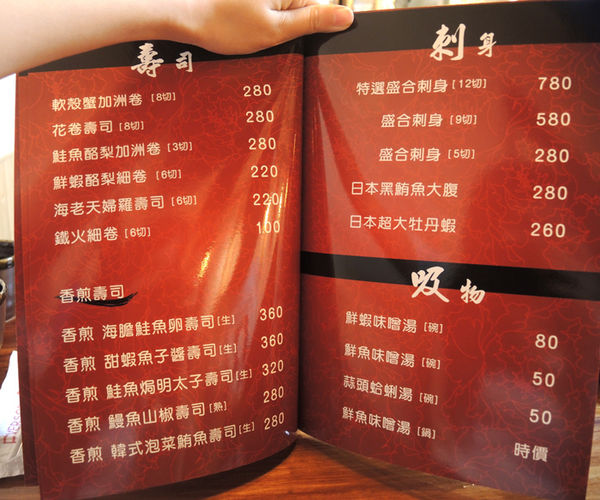 壽司
軟殼蟹加洲卷 [8切] 280
花卷壽司 [8切] 280
鮭魚酪梨加洲卷 [3切] 280
鮮蝦酪梨細卷 [6切] 220
海老天婦羅壽司 [6切] 220
鐵火細卷 [6切] 100
香煎壽司
香煎 海膽鮭魚卵壽司 [生] 360
香煎 甜蝦魚子醬壽司 [生] 360
香煎 鮭魚焗明太子壽司 [生] 320
香煎 鰻魚山椒壽司 [熟] 280
香煎 韓式泡菜鮪魚壽司 [生] 280
刺身
特選盛合刺身 [12切] 780
盛合刺身 [9切] 580
盛合刺身 [5切] 280
日本黑鮪魚大腹 280
日本超大牡丹蝦 260
吸物
鮮蝦味噌湯 [碗] 80
鮮魚味噌湯 [碗] 50
蒜頭蛤蜊湯 [碗] 50
鮮魚味噌湯 [鍋] 時價